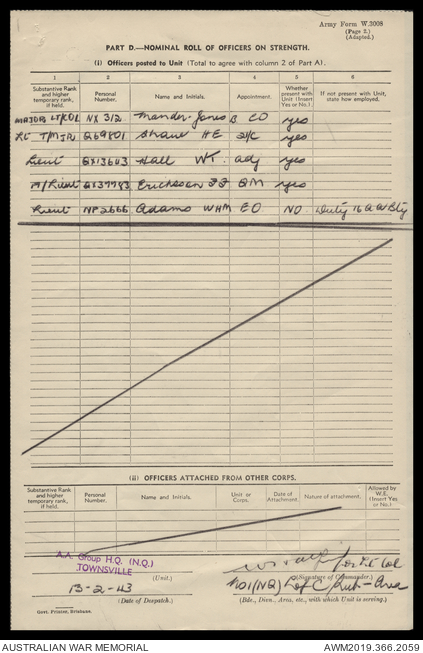 Army Form W.3008
(Page 2.)
(Adapted.)
PART D.—NOMINAL ROLL OF OFFICERS ON STRENGTH.
(i) Officers posted to Unit (Total to agree with column 2 of Part A).
1 2 3 4 5 6
Substantive Rank and higher temporary rank, if held. Personal Number. Name and Initials. Appointment. Whether present with Unit (Insert Yes or No.) If not present with Unit, state how employed.
MAJOR LT/COL NX 312 Mander-Jones B CO yes
Lt T/MJR Q69801 Shave HE 2I/C yes
Lieut QX13643 Hall WT. adj yes
A/Lieut QX37783 Erichsen QM yes
Lieut NP2666 Adams WHM EO NO Duty 16 A A Bty
(ii) OFFICERS ATTACHED FROM OTHER CORPS.
Substantive Rank and higher temporary rank, if held. Personal Number. Name and Initials. Unit or Corps. Date of Attachment. Nature of attachment. Allowed by W.E. (Insert Yes or No.)
A.A. Group H.Q. (N.Q.)
TOWNSVILLE
(Unit.)
for Lt Col
(Signature of Commander.)
13-2-43
No1(NQ) L of C Sub-Area
(Date of Despatch.)
(Bde., Divn., Area, etc., with which Unit is serving.)
Govt. Printer, Brisbane.
AUSTRALIAN WAR MEMORIAL AWM2019.366.2059